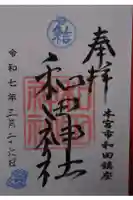 奉拝
本宮市和田鎮座
結
和田神社
令和七年三月二十二日